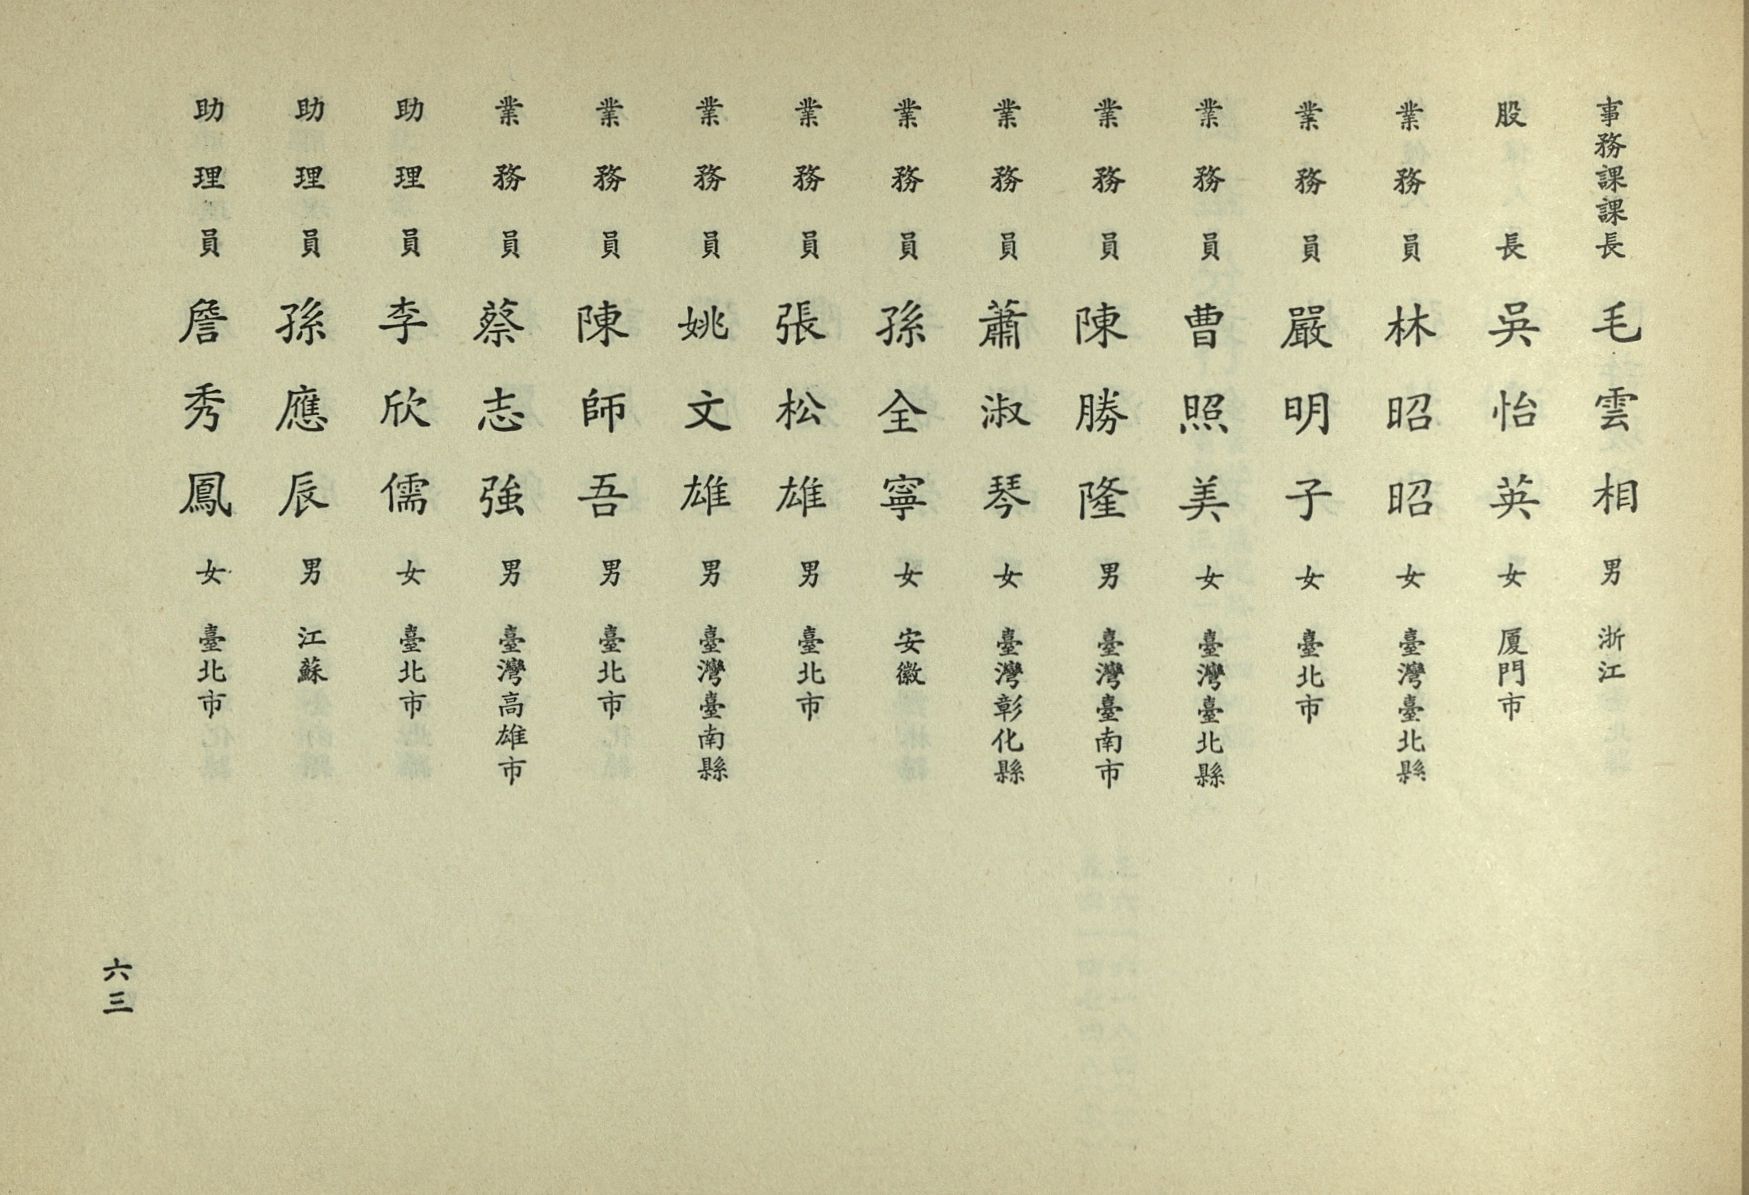 事務課課長 毛雲相 男 浙江
股長 吳怡英 女 厦門市
業務員 林昭昭 女 臺灣臺北縣
業務員 嚴明子 女 臺北市
業務員 曹照美 女 臺灣臺北縣
業務員 陳勝隆 男 臺灣臺南市
業務員 蕭淑琴 女 臺灣彰化縣
業務員 孫全寧 女 安徽
業務員 張松雄 男 臺北市
業務員 姚文雄 男 臺灣臺南縣
業務員 陳師吾 男 臺北市
業務員 蔡志強 男 臺灣高雄市
助理員 李欣儒 女 臺北市
助理員 孫應辰 男 江蘇
助理員 詹秀鳳 女 臺北市
六三